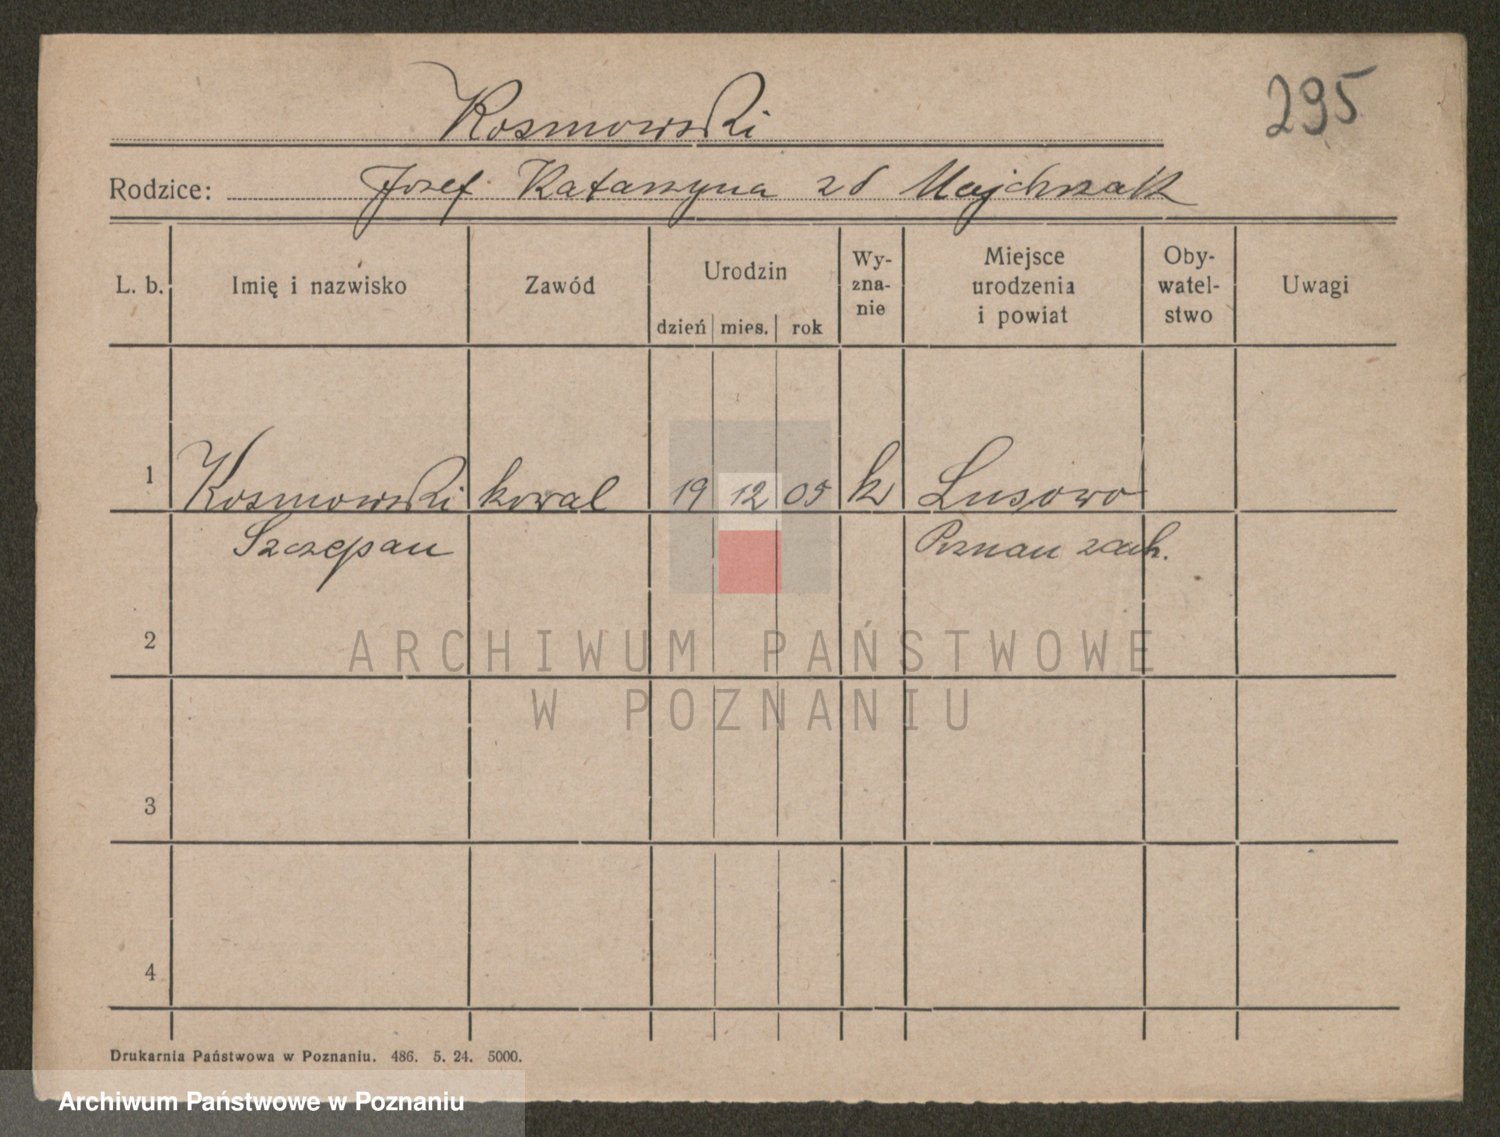 Kosmowski
295
Rodzice: Józef Katarzyna zd Majchrzak
L. b. Imię i nazwisko Zawód Urodzin Wy-zna-nie Miejsce urodzenia i powiat Oby-watel-stwo Uwagi
dzień mies. rok
1 Kosmowski kowal 19 12 05 k Lusowo
Szczepan Poznan zach.
2
ARCHIWUM PAŃSTWOWE
W POZNANIU
3
4
Drukarnia Państwowa w Poznaniu. 486. 5. 24. 5000.
Archiwum Państwowe w Poznaniu